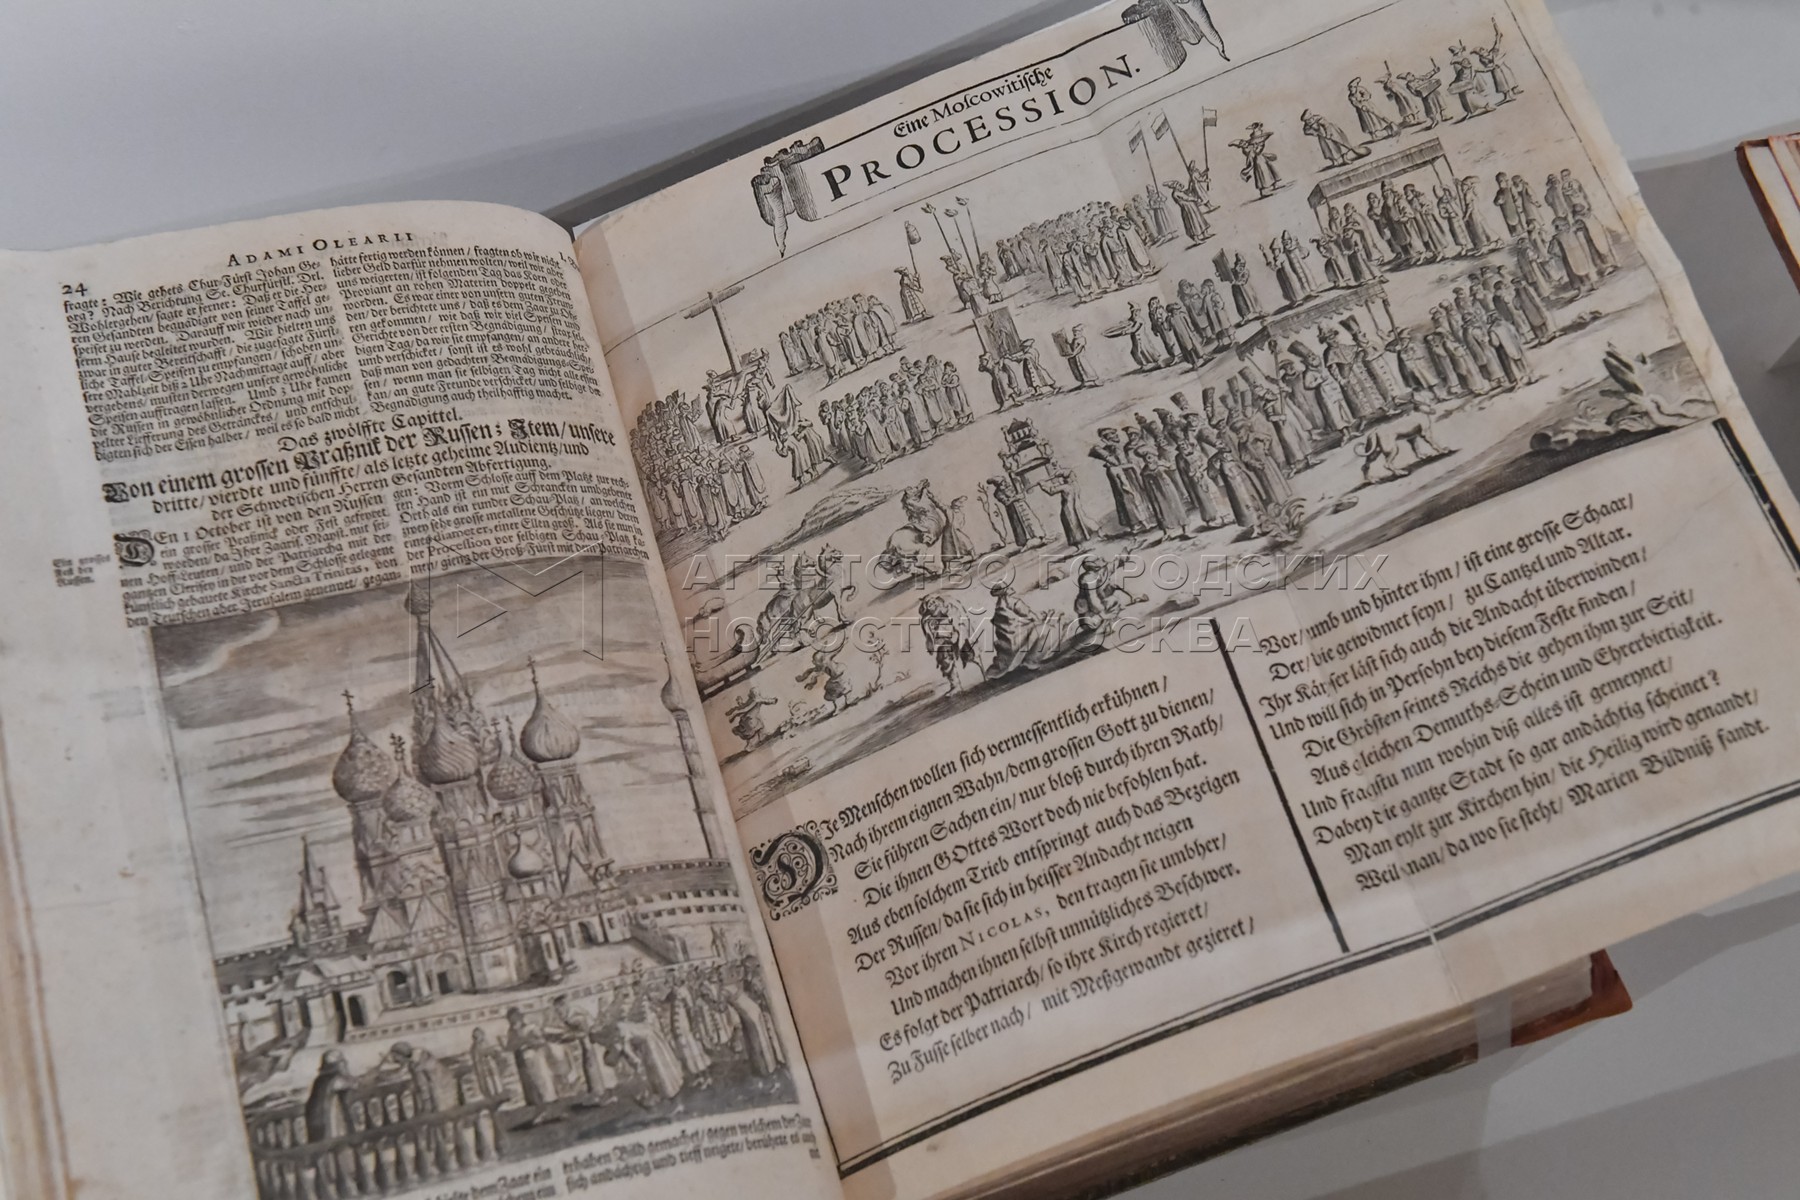 24
ADAMI OLEARII
fragte: Wie gehets Chur-Fürst Johan Ge-
org? Nach Berichtung Se. Churfürstl. Del.
Wohlergehen/ sagte er ferner: Daß er die Her-
ren Gesandten begnädiget von seiner Taffel ge-
speiset zu werden. Darauff wir wieder nach un-
serm Hause begleitet wurden. Wir hielten uns
zwar in guter Bereitschafft/ die zugesagte Fürst-
liche Taffel-Speisen zu empfangen/ schoben un-
sere Mahlzeit biß 2 Uhr Nachmittage auff/ aber
vergebens/ musten derwegen unsere gewöhnliche
Speisen aufftragen lassen. Umb 3 Uhr kamen
die Russen in gewöhnlicher Ordnung mit dop-
pelter Liefferung des Getränckes/ und entschul-
digten sich der Essen halber/ weil es so bald nicht
hätte fertig werden können/ fragten ob wir nicht
lieber Geld darfür nehmen wolten/ weil wir aber
uns weigerten/ ist folgenden Tag das Korn oder
Proviant an rohen Materien doppelt gegeben
worden. Es war einer von unsern guten Freun-
den/ der berichtete uns/ daß es dem Zaar zu Oh-
ren gekommen/ wie daß wir viel Speisen und
Gerichte von der ersten Begnädigung/ selbi-
gen Tag/ da wir sie empfangen/ an andere
verschicket/ sonst ist es wohl gebräuchlich/
daß man von gedachten Begnädigungs-Spei-
sen/ wenn man sie selbigen Tag nicht alle essen
kan/ an gute Freunde verschicket/ und selbige der
Begnädigung auch theilhafftig machet.
Das zwölffte Capittel.
Von einem grossen Praßnik der Russen; Item/ unsere
dritte/ vierdte und fünffte/ als letzte geheime Audientz/ und
der Schwedischen Herren Gesandten Abfertigung.
Ein grosses
Fest der
Russen.
DEn 1 October ist von den Russen
ein grosser Praßnick oder Fest gefeyret
worden/ da Ihr Zaarif. Mayst. mit sei-
nen Hoff-Leuten/ und der Patriarcha mit der
gantzen Clerisey in die vor dem Schlosse gelegene
künstlich gebauete Kirche Sancta Trinitas, von
den Teutschen aber Jerusalem genennet/ gegan-
gen: Vorm Schlosse auff dem Platz zur rech-
ten Hand ist ein mit Schrancken umbgebener
Orth als ein runder Schau-Platz/ an welchen
zwey sehr grosse metallene Geschütze liegen/ deren
eins diameter, einer Ellen groß. Als sie nun in
der Procession vor selbigen Schau-Platz ka-
men/ gieng der Groß-Fürst mit dem Patriarchen
erhaben Bild gemachet/ gegen welchem der Zaar
sich andächtig und tieff neigete/ berührte es auch
Eine Moscowitische
PROCESSION.
DIe Menschen wollen sich vermessentlich erkühnen/
Nach ihrem eignen Wahn/ dem grossen Gott zu dienen/
Sie führen Sachen ein/ nur bloß durch ihren Rath/
Die ihnen GOttes Wort doch nie befohlen hat.
Aus eben solchem Trieb entspringt auch das Bezeigen
Der Russen/ da sie sich in heisser Andacht neigen
Vor ihren NICOLAS, den tragen sie umbher/
Und machen ihnen selbst unnützliches Beschwer.
Es folgt der Patriarch/ so ihre Kirch regieret/
Zu Fusse selber nach/ mit Meßgewandt gezieret/
Vor/ umb und hinter ihm/ ist eine grosse Schaar/
Der/ die gewidmet seyn/ zu Cantzel und Altar.
Ihr Käyser läst sich auch die Andacht überwinden/
Und will sich in Persohn bey diesem Feste finden/
Die Grösten seines Reichs die gehen ihm zur Seit/
Aus gleichen Demuths-Schein und Ehrerbietigkeit.
Und fragstu nun wohin diß alles ist gemeynet/
Dabey die gantze Stadt so gar andächtig scheinet?
Man eylt zur Kirchen hin/ die Heilig wird genandt/
Weil man/ da wo sie steht/ Marien Bildniß fandt.
АГЕНТСТВО ГОРОДСКИХ
НОВОСТЕЙ МОСКВА